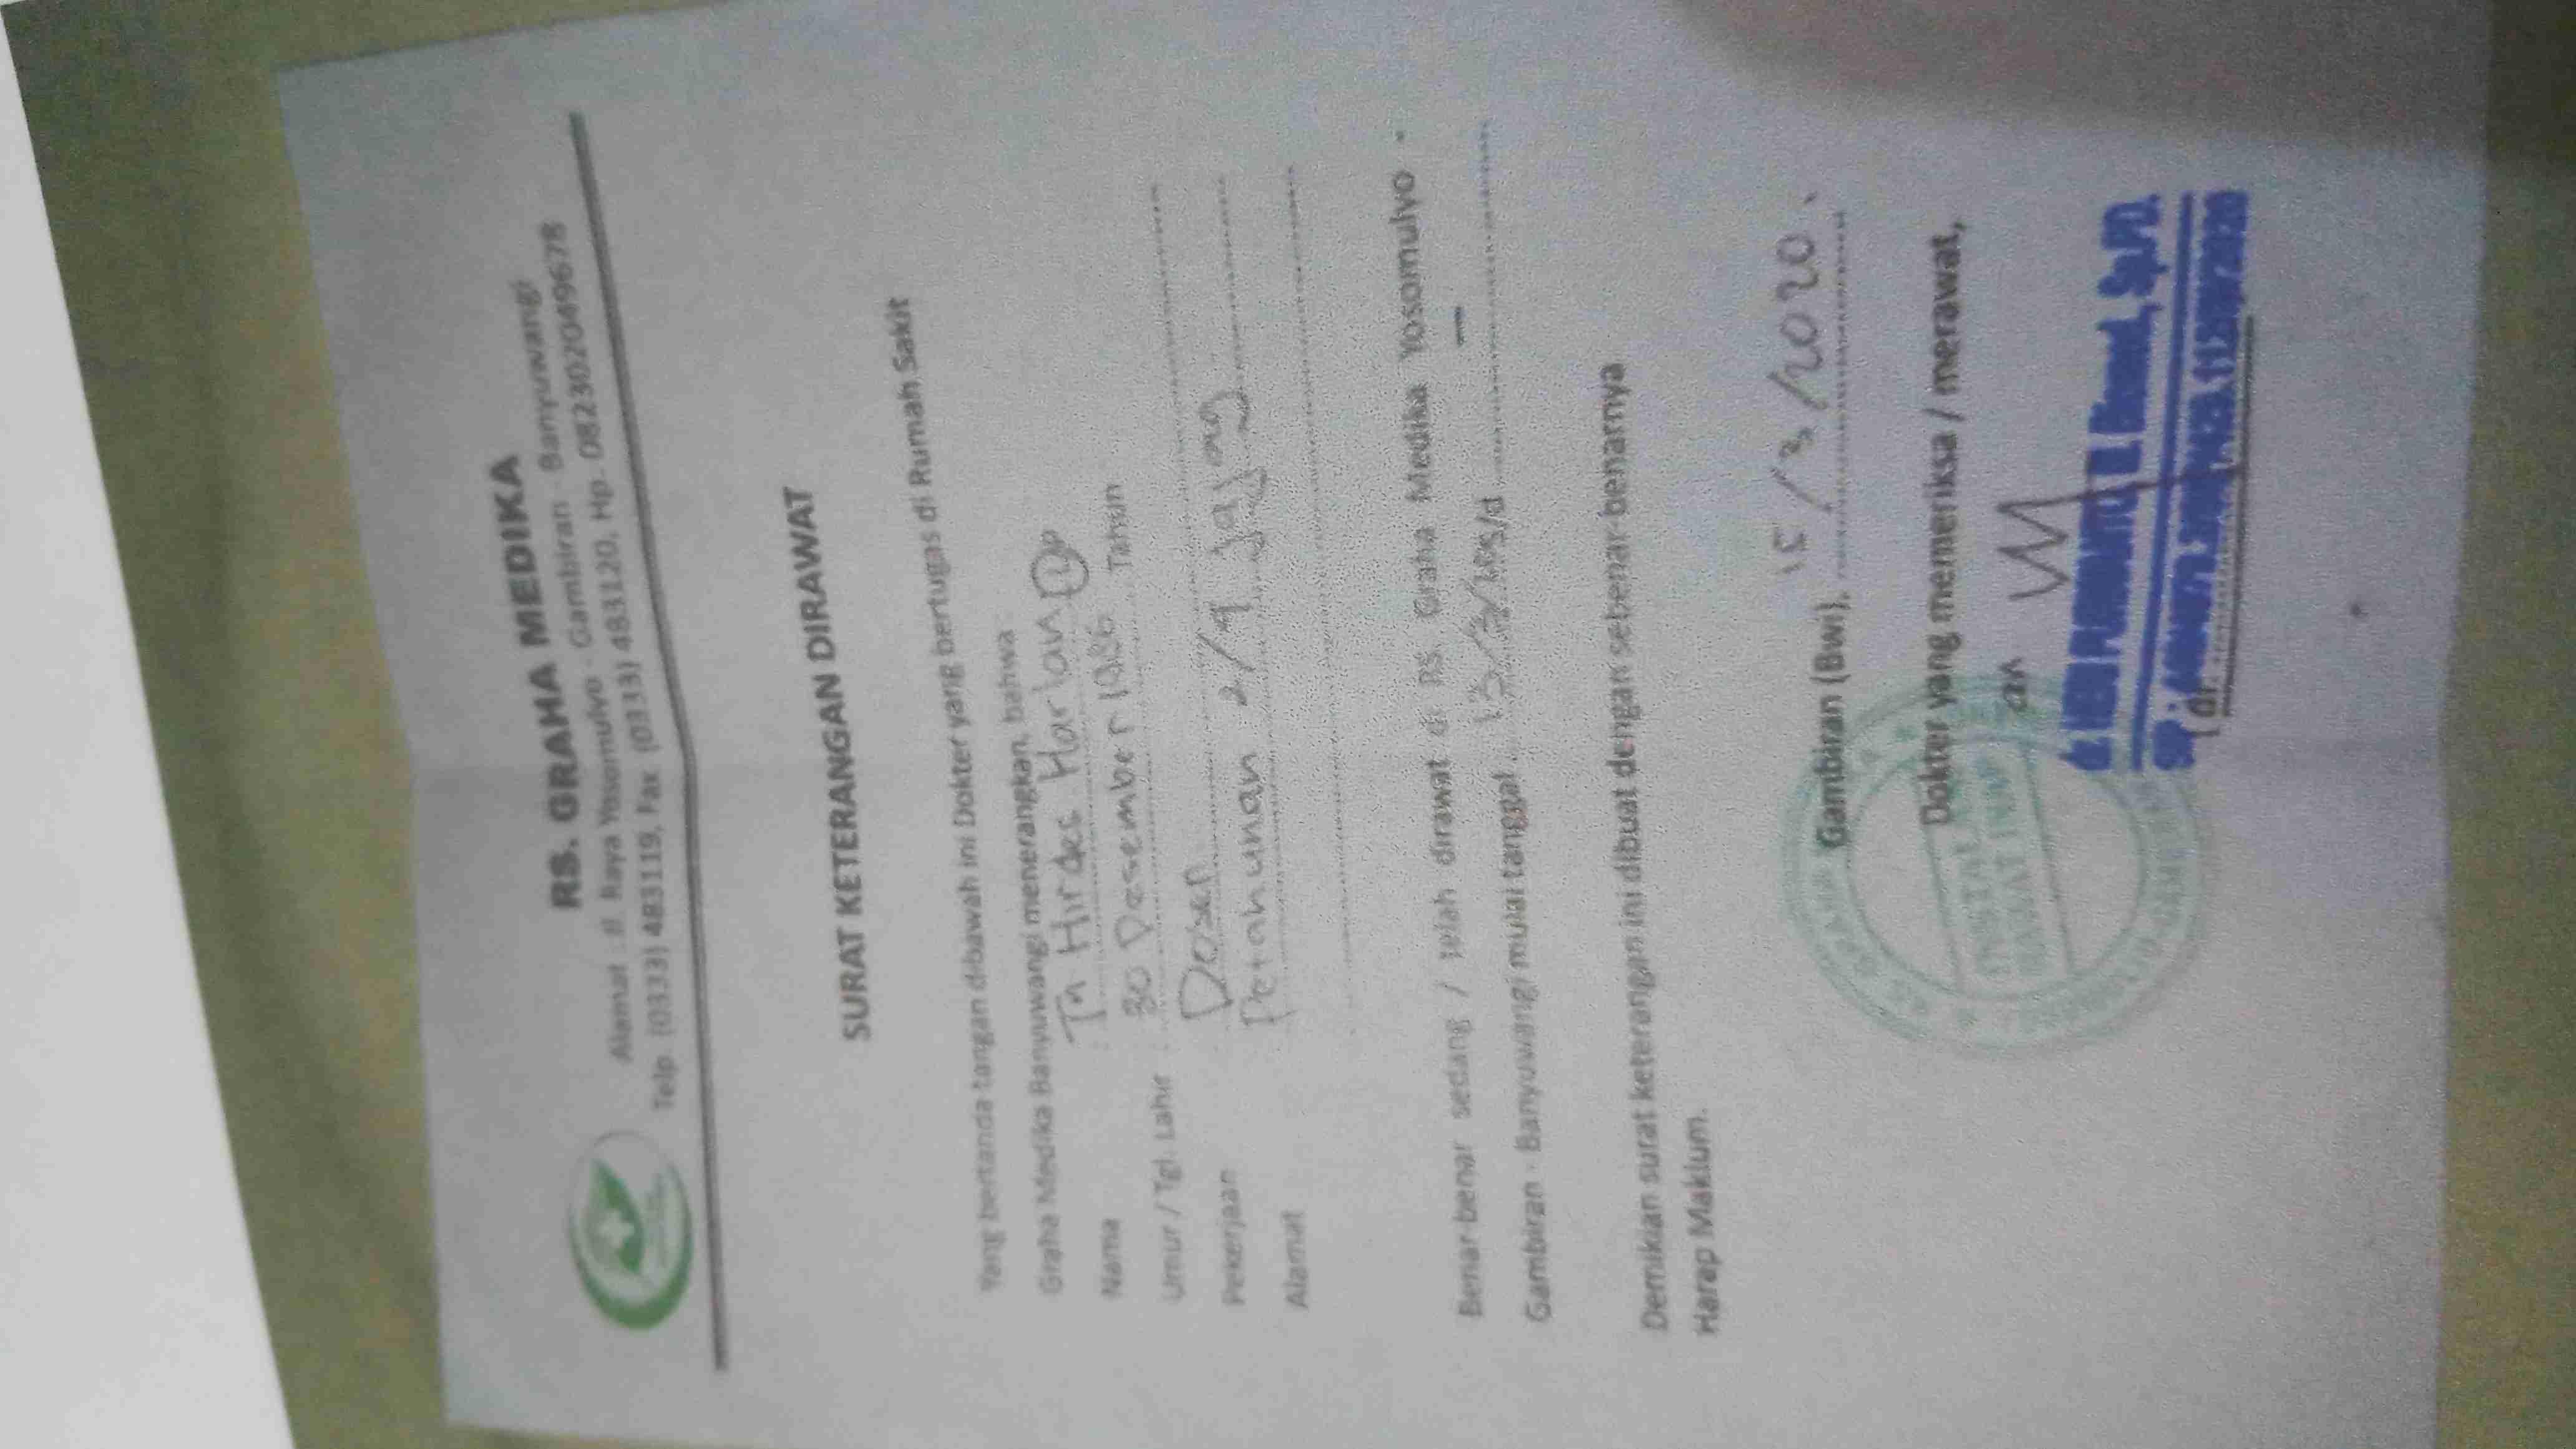 RS. GRAHA MEDIKA
Alamat : Jl. Raya Yosomulyo - Gambiran - Banyuwangi
Telp. (0333) 483119, Fax. (0333) 483120, Hp. 082302049678
SURAT KETERANGAN DIRAWAT
Yang bertanda tangan dibawah ini Dokter yang bertugas di Rumah Sakit
Graha Medika Banyuwangi menerangkan, bahwa
Nama : Tn Hirdes Harlan
Umur / Tgl. Lahir : 30 Desember 1986 Tahun
Pekerjaan Dosen
Alamat Petahunan 2/4 Jajag
Benar-benar sedang / telah dirawat di RS. Graha Medika Yosomulyo -
Gambiran - Banyuwangi mulai tanggal 13/3/ s/d
Demikian surat keterangan ini dibuat dengan sebenar-benarnya
Harap Maklum.
Gambiran (Bwi), 15/3/2020.
Dokter yang memeriksa / merawat,
RS GRAHA
INSTALASI
RAWAT INAP
an
dr. HERI PURWANTO, M. Biomed, Sp.PD.
SIP :
( dr.